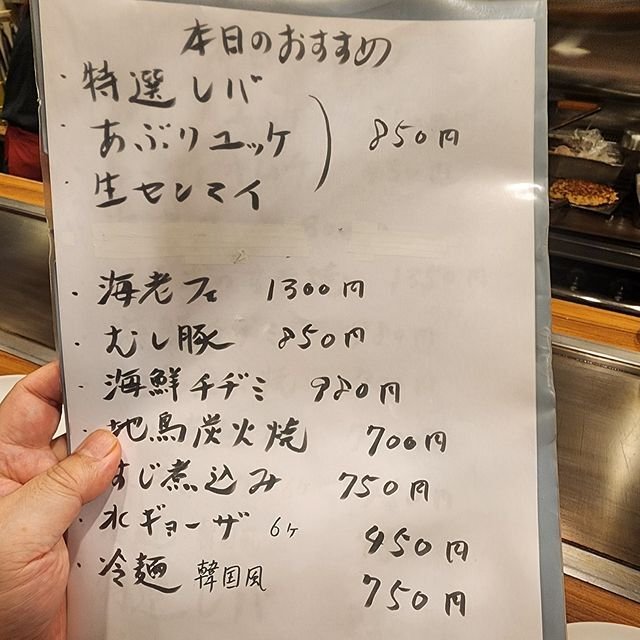 本日のおすすめ
・特選レバ
・あぶりユッケ 850円
・生センマイ
・海老フェ 1300円
・むし豚 850円
・海鮮チヂミ 980円
地鳥炭火焼 700円
すじ煮込み 750円
・水ギョーザ 6ヶ 450円
・冷麺 韓国風 750円